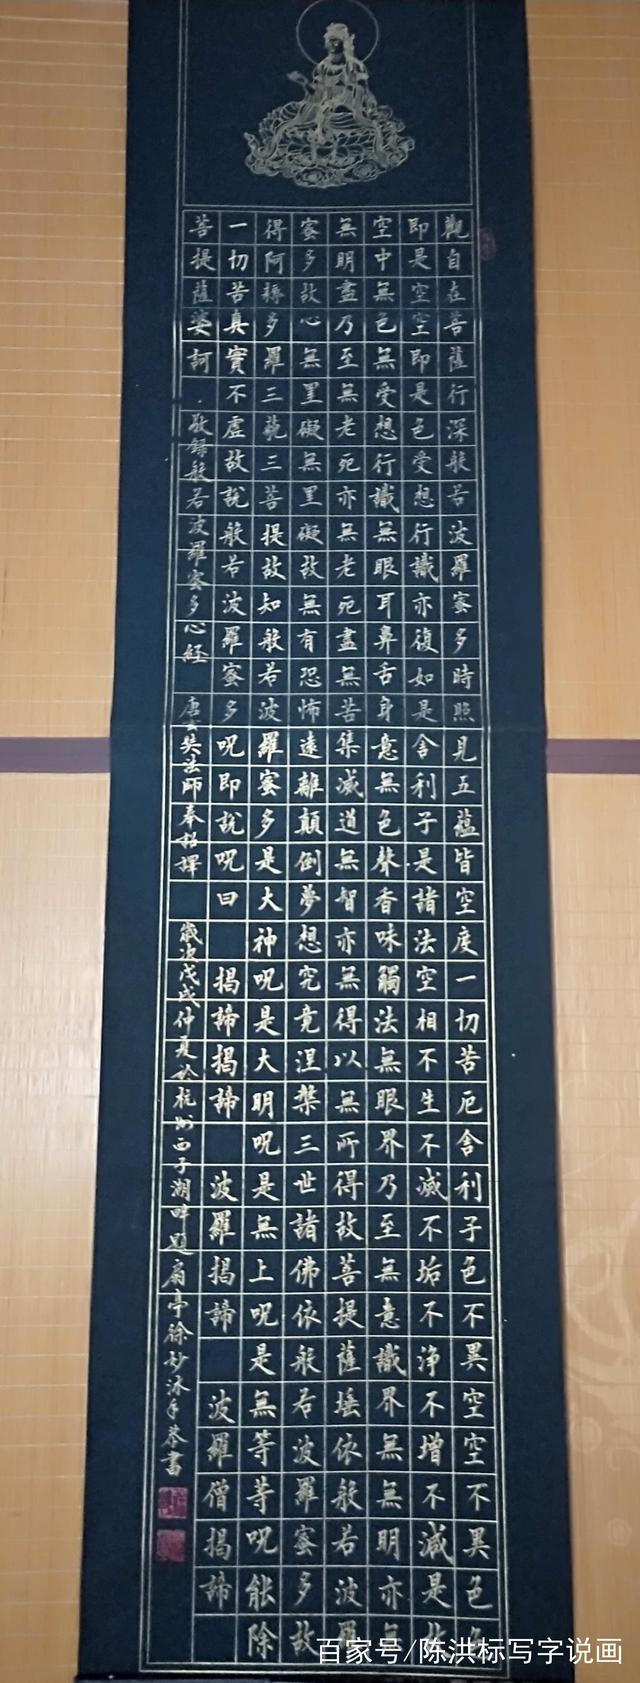 觀自在菩薩行深般若波羅蜜多時照見五蘊皆空度一切苦厄舍利子色不異空空不異色色
即是空空即是色受想行識亦復如是舍利子是諸法空相不生不滅不垢不淨不增不減是故
空中無色無受想行識無眼耳鼻舌身意無色聲香味觸法無眼界乃至無意識界無無明亦無
無明盡乃至無老死亦無老死盡無苦集滅道無智亦無得以無所得故菩提薩埵依般若波羅
蜜多故心無罣礙無罣礙故無有恐怖遠離顛倒夢想究竟涅槃三世諸佛依般若波羅蜜多故
得阿耨多羅三藐三菩提故知般若波羅蜜多是大神呪是大明呪是無上呪是無等等呪能除
一切苦真實不虛故說般若波羅蜜多呪即說呪曰 揭諦揭諦 波羅揭諦 波羅僧揭諦
菩提薩婆訶 敬錄般若波羅蜜多心經 唐玄奘法師奉詔譯 歲次戊戌仲夏於杭州西子湖畔題扇亭徐妙沐手恭書
百家号/陈洪标写字说画